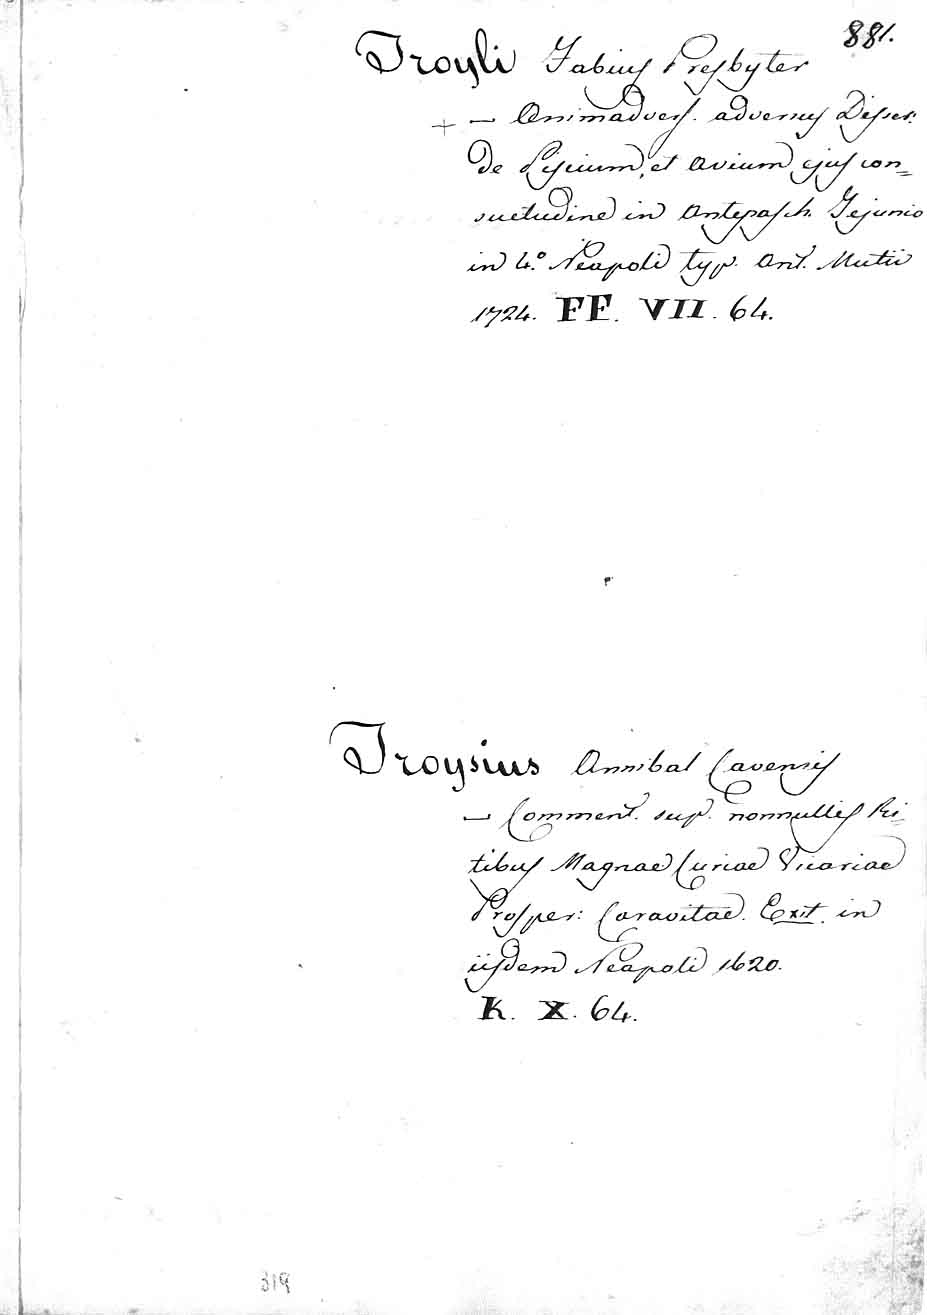 881.
Troyli Fabius Presbyter
+ — Animadvers. adversus Disser:
de Piscium, et Avium, ejus con=
suetudine in Antepasch. Jejunio
in 4.º Neapoli typ. Ant. Mutii
1724. FF. VII. 64.
Troysius Annibal Cavensis
— Comment. sup. nonnullis Ri=
tibus Magnae Curiae Vicariae
Prosper: Caravitae. Exit. in
iisdem Neapoli 1620.
K. X. 64.
319